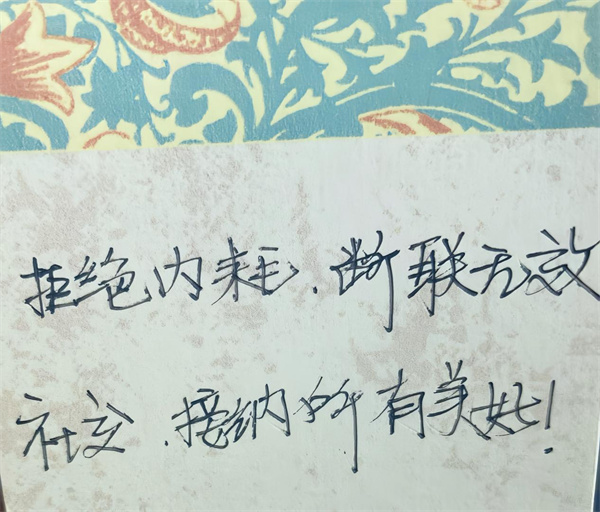 拒绝内耗，断联无效
社交，接纳所有美好！